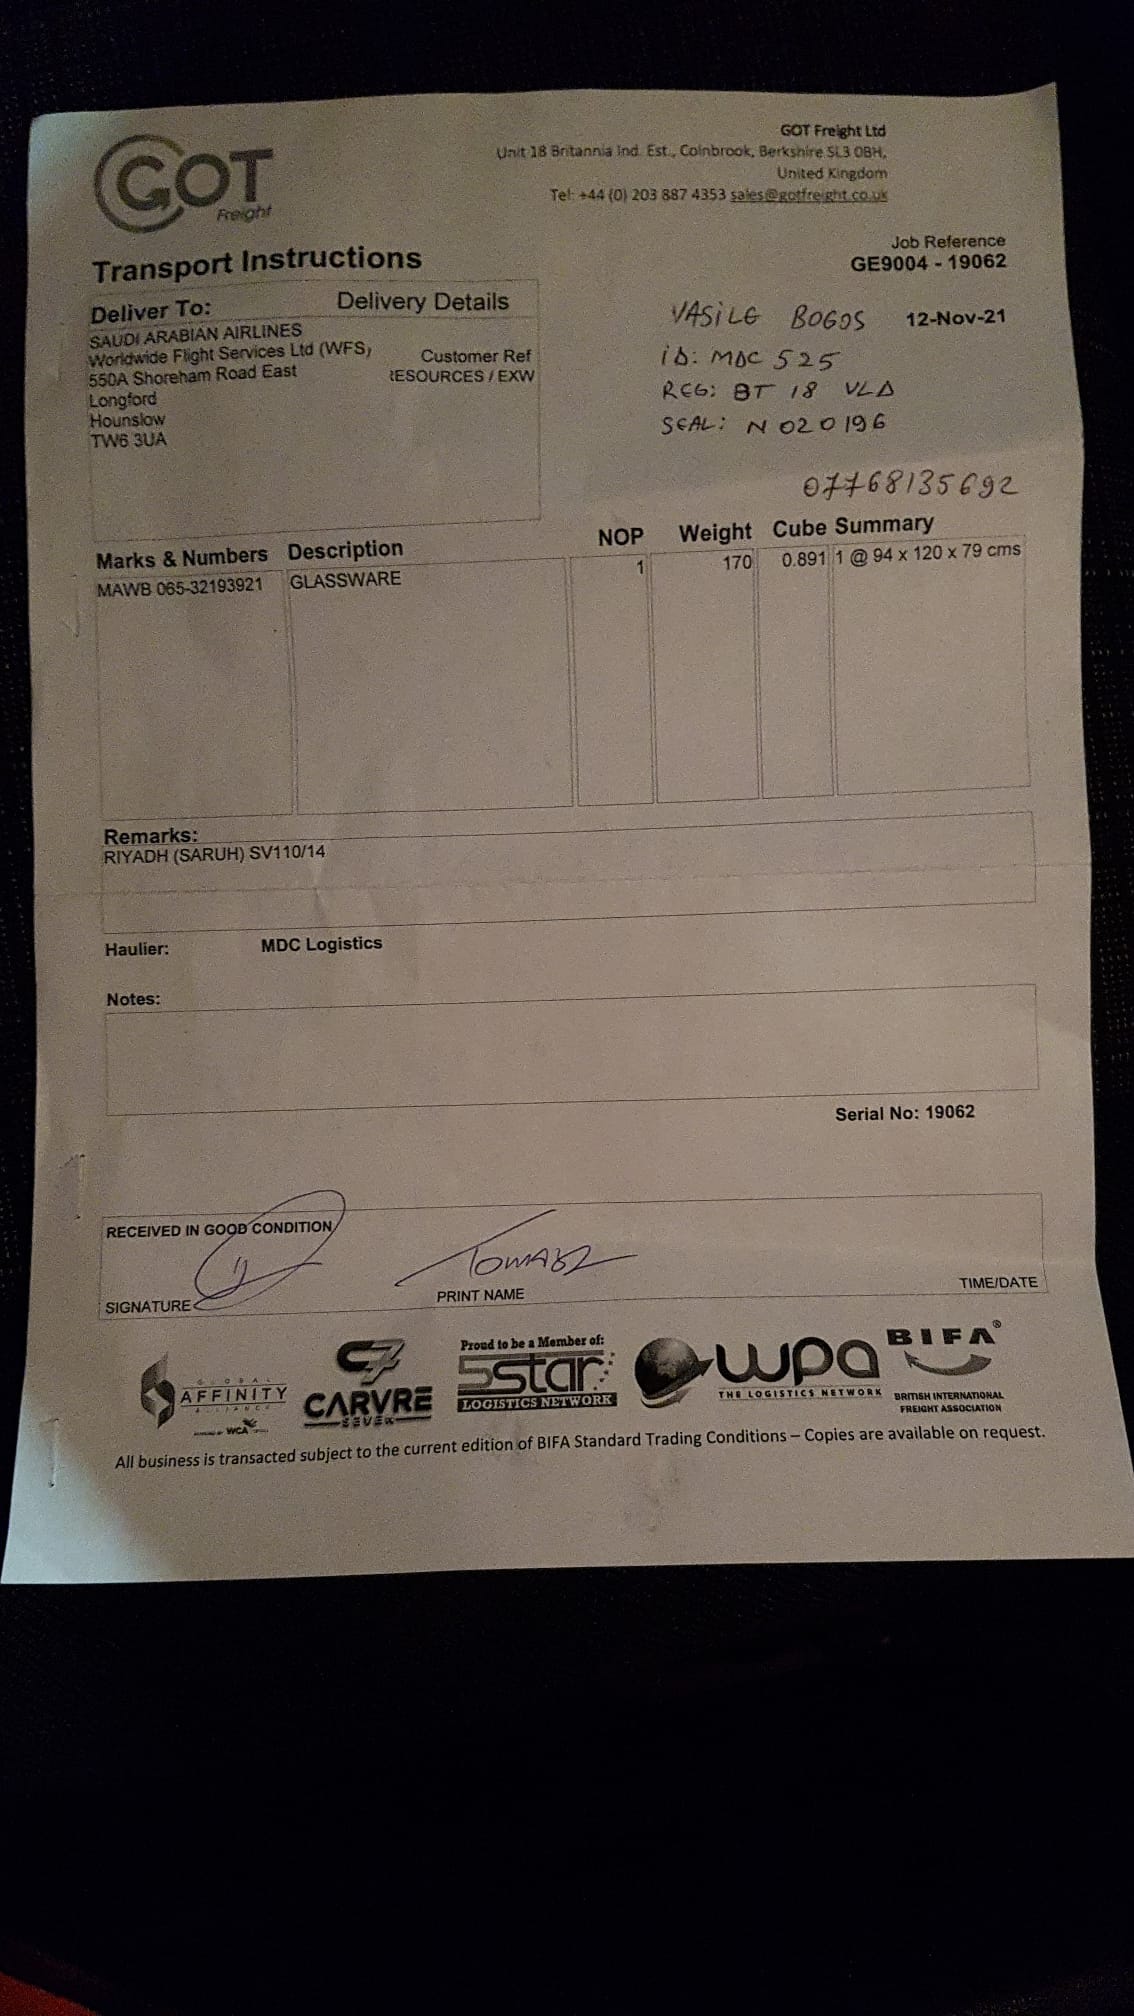 GOT
Freight
GOT Freight Ltd
Unit 18 Britannia Ind. Est., Colnbrook, Berkshire SL3 0BH,
United Kingdom
Tel: +44 (0) 203 887 4353 sales@gotfreight.co.uk
Transport Instructions
Job Reference
GE9004 - 19062
Deliver To: Delivery Details
SAUDI ARABIAN AIRLINES
Worldwide Flight Services Ltd (WFS)
550A Shoreham Road East
Longford
Hounslow
TW6 3UA
Customer Ref
RESOURCES / EXW
VASILE BOGOS 12-Nov-21
ID: MDC 525
REG: BT 18 VLA
SEAL: N 020196
07768135692
Marks & Numbers Description NOP Weight Cube Summary
MAWB 065-32193921 GLASSWARE 1 170 0.891 1 @ 94 x 120 x 79 cms
Remarks:
RIYADH (SARUH) SV110/14
Haulier: MDC Logistics
Notes:
Serial No: 19062
RECEIVED IN GOOD CONDITION
TOMASZ
SIGNATURE PRINT NAME TIME/DATE
GLOBAL
AFFINITY
ALLIANCE
WCA
C7
CARVRE
SEVEN
Proud to be a Member of:
5star
LOGISTICS NETWORK
wpa
THE LOGISTICS NETWORK
BIFA®
BRITISH INTERNATIONAL
FREIGHT ASSOCIATION
All business is transacted subject to the current edition of BIFA Standard Trading Conditions – Copies are available on request.